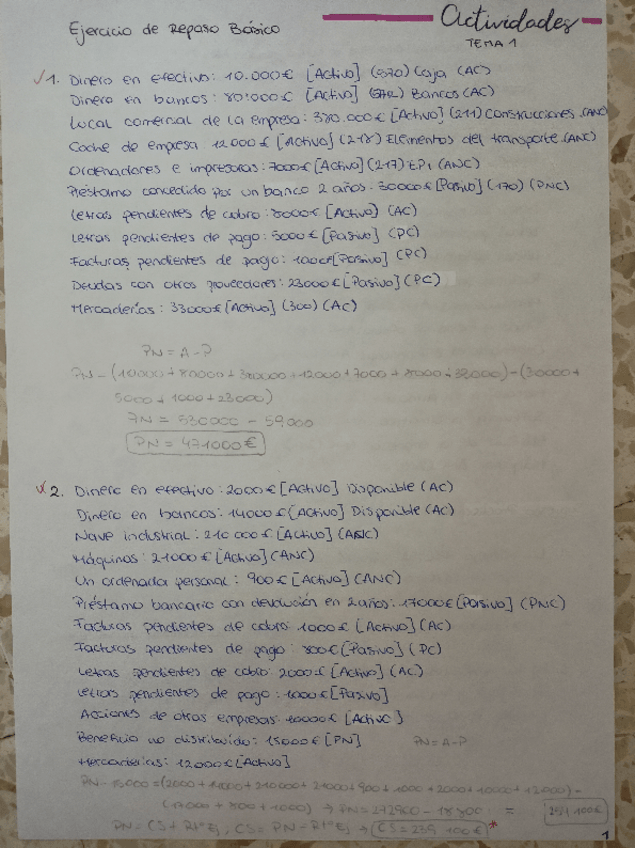 Actividades
Ejercicio de Repaso Básico
TEMA 1
1. Dinero en efectivo: 10.000€ [Activo] (570) Caja (AC)
Dinero en bancos: 80.000€ [Activo] (572) Bancos (AC)
Local comercial de la empresa: 380.000€ [Activo] (211) Construcciones (ANC)
Coche de empresa: 12000€ [Activo] (218) Elementos del transporte (ANC)
Ordenadores e impresoras: 7000€ [Activo] (217) EPI (ANC)
Préstamo concedido por un banco 2 años: 30000€ [Pasivo] (170) (PNC)
Letras pendientes de cobro: 8000€ [Activo] (AC)
Letras pendientes de pago: 5000€ [Pasivo] (PC)
Facturas pendientes de pago: 1000€ [Pasivo] (PC)
Deudas con otros proveedores: 23000€ [Pasivo] (PC)
Mercaderías: 33000€ [Activo] (300) (AC)
PN = A - P
PN = (10000 + 80000 + 380000 + 12000 + 7000 + 8000 + 33000) - (30000 +
5000 + 1000 + 23000)
PN = 530000 - 59.000
PN = 471000€
2. Dinero en efectivo: 2000€ [Activo] Disponible (AC)
Dinero en bancos: 14000€ [Activo] Disponible (AC)
Nave industrial: 210000€ [Activo] (ANC)
Máquinas: 21000€ [Activo] (ANC)
Un ordenador personal: 900€ [Activo] (ANC)
Préstamo bancario con devolución en 2 años: 17000€ [Pasivo] (PNC)
Facturas pendientes de cobro: 1000€ [Activo] (AC)
Facturas pendientes de pago: 800€ [Pasivo] (PC)
Letras pendientes de cobro: 2000€ [Activo] (AC)
Letras pendientes de pago: 1000€ [Pasivo]
Acciones de otras empresas: 10000€ [Activo]
Beneficio no distribuido: 15000€ [PN]
PN = A - P
Mercaderías: 12000€ [Activo]
PN - 15000 = (2000 + 14000 + 210000 + 21000 + 900 + 1000 + 2000 + 10000 + 12000) -
(17000 + 800 + 1000) → PN = 272900 - 18800 = 254.100€
PN = CS + Rtº Ej; CS = PN - Rtº Ej → CS = 239.100€ *
1